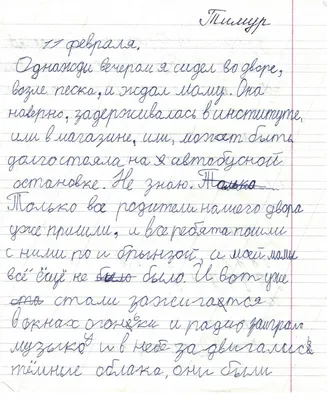 Тимур
11 февраля.
Однажди вечером я сидел во дворе,
возле песка, и ждал маму. Она
наверно, задерживалась в институте,
или в магазине, или, может быть
долго стояла на автобусной
остановке. Не знаю. Только
Только все родители нашего двора
уже пришли, и все ребята пошли
с ними по и брынзой, а моей мами
всё ещё не было было. И вот уже
стали зажигатся
в окнах огоньки и радио заиграл
музыку и в небе задвигались
тёмные облака, они были